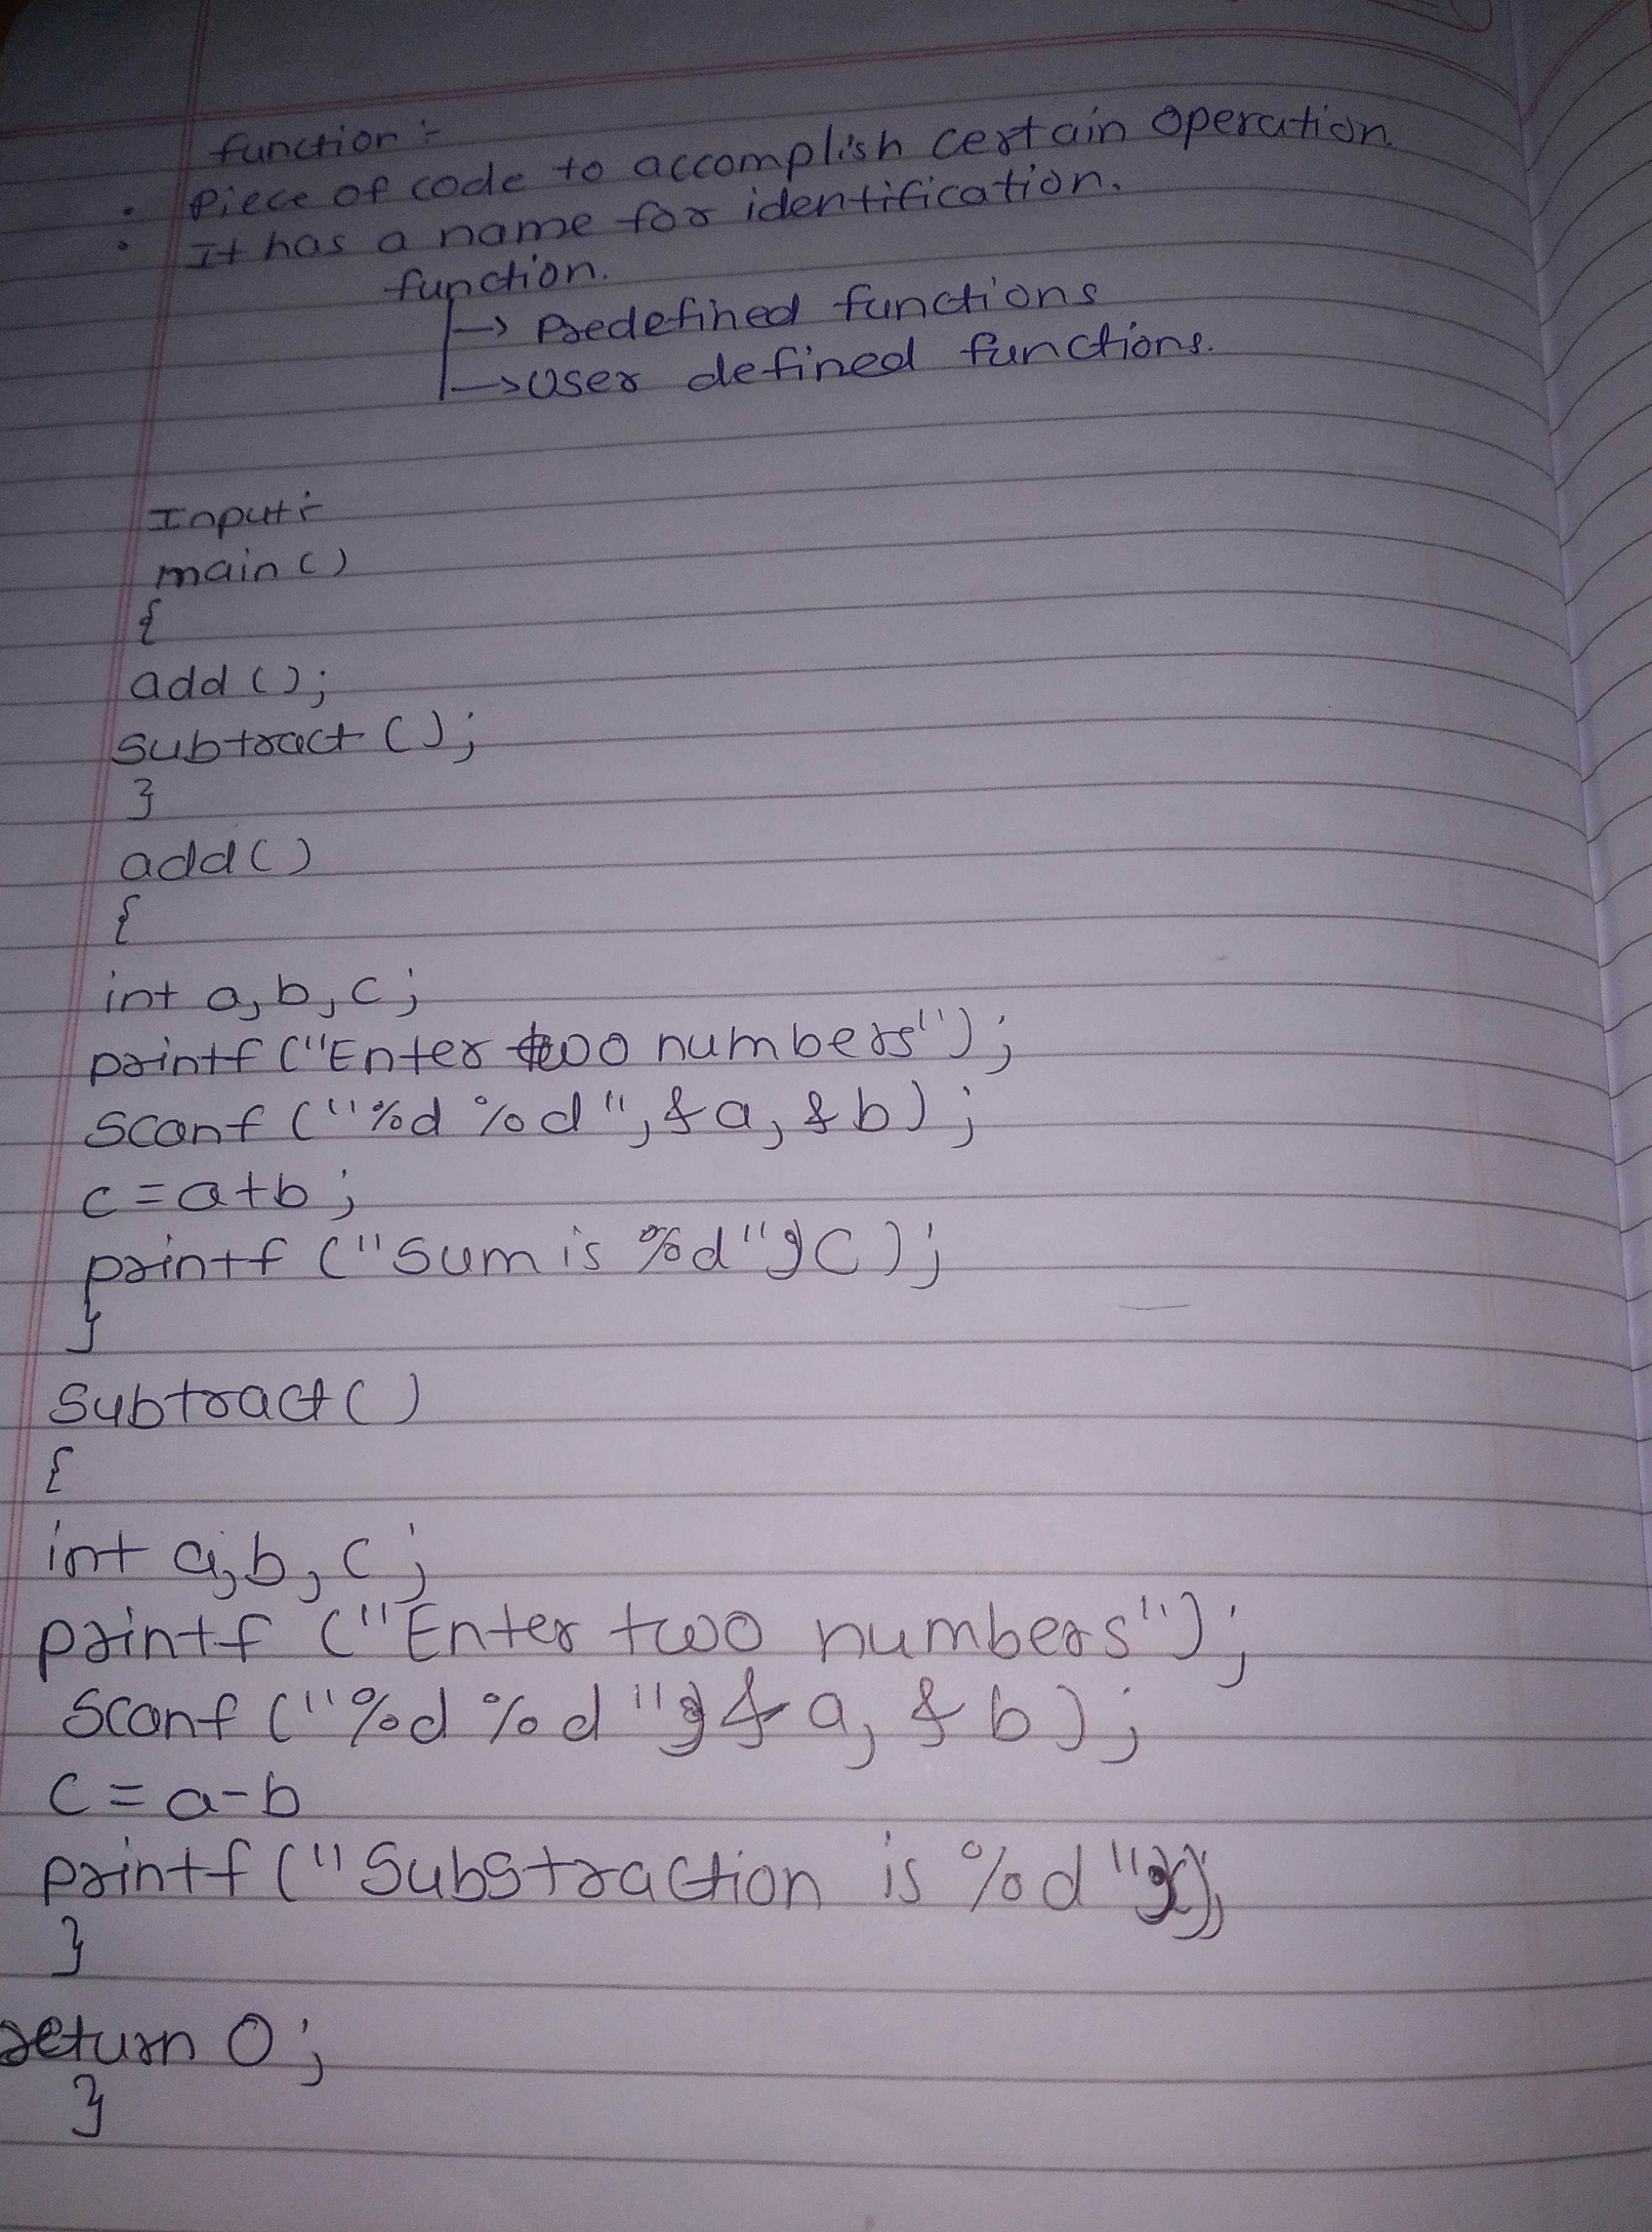 function :-
• Piece of code to accomplish certain operation.
• It has a name for identification.
function.
→ Predefined functions
→ User defined functions.
Input :-
main ()
{
add ();
subtract ();
}
add ()
{
int a, b, c;
printf ("Enter two numbers");
scanf ("%d %d", &a, &b);
c = a+b;
printf ("Sum is %d", c);
}
Subtract ()
{
int a, b, c;
printf ("Enter two numbers");
scanf ("%d %d", &a, &b);
c = a-b
printf ("Substraction is %d",c);
}
return 0;
}